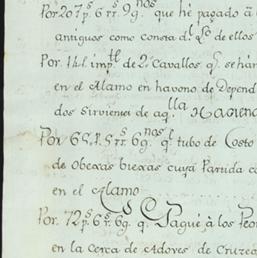 Por 207 p.s 6 rr.s 9 g.nos que hè pagado à
antiguos como consta d.l Q.o de ellos
Por 14 l. imp.te de 2 Cavallos q.e se hàn
en el Alamo en havono de Depend
dos Sirvientes de aq.lla Hacien
Por 65 l. 5 rr.s 6 g.nos q.e tubo de Costo
de Obexas biexas cuya Partida co
en el Alamo
Por 72 p.s 6 r.s 6 g. q. Paguè à los Peo
en la cerca de Adoves de Cruze